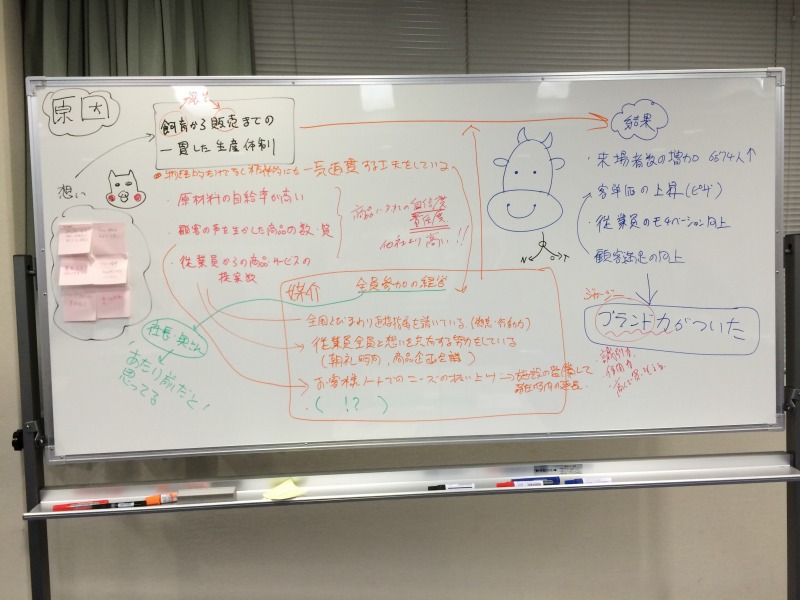 原因
飼育から販売までの
一貫した生産体制
想い
一気通貫する工夫をしている
・原材料の自給率が高い
・顧客の声を生かした商品の数・質
・従業員からの商品・サービスの
提案数
商品に対しての自信度
責任度
他社より高い!!
媒介 全員参加の経営
社長 奥さん
「あたり前だと」
思ってる
全国とびまわり直接指導を請いている(発想・行動力)
従業員全員と想いを共有する努力をしている
(朝礼時間、商品企画会議)
お客様ノートでのニーズの拾い上げ→施設の整備して
・( !? )
結果
・来場者数の増加 6574人↑
・客単価の上昇(ピザ)
・従業員のモチベーション向上
顧客満足の向上
ジャージー
ブランド力がついた
信用力